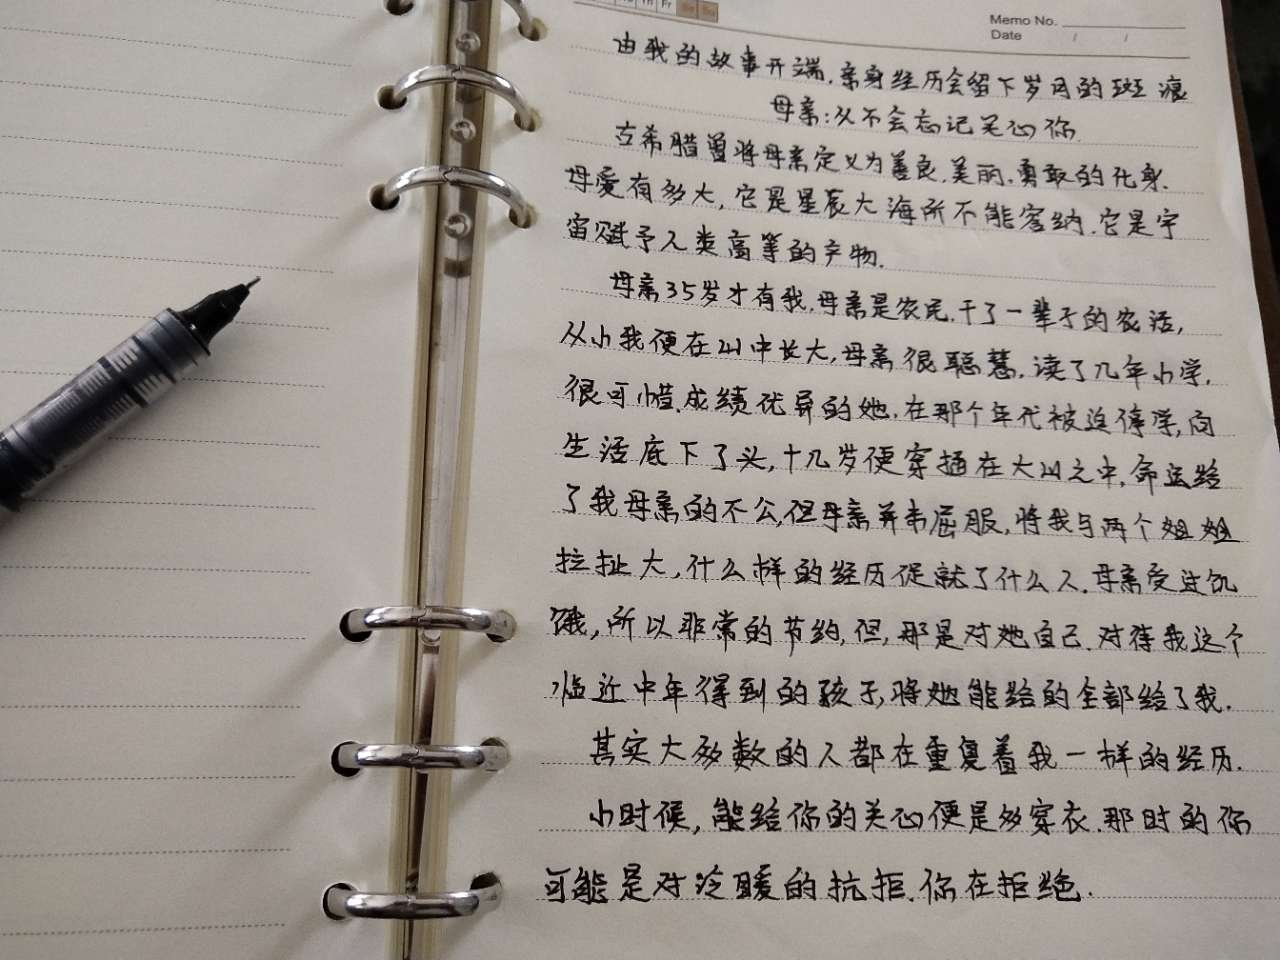 Th Fr Sa Su
Memo No.
Date / /
由我的故事开端.亲身经历会留下岁月的斑痕
母亲:从不会忘记关心你
古希腊曾将母亲定义为善良.美丽.勇敢的化身.
母爱有多大,它是星辰大海所不能容纳.它是宇
宙赋予人类高等的产物.
母亲35岁才有我.母亲是农民.干了一辈子的农活,
从小我便在山中长大,母亲很聪慧.读了几年小学,
很可惜.成绩优异的她.在那个年代被迫停学,向
生活底下了头,十几岁便穿插在大山之中.命运给
了我母亲的不公,但母亲并未屈服,将我与两个姐姐
拉扯大,什么样的经历促就了什么人.母亲受过饥
饿,所以非常的节约,但,那是对她自己.对待我这个
临近中年得到的孩子,将她能给的全部给了我.
其实大多数的人都在重复着我一样的经历.
小时候,能给你的关心便是多穿衣.那时的你
可能是对冷暖的抗拒.你在拒绝.